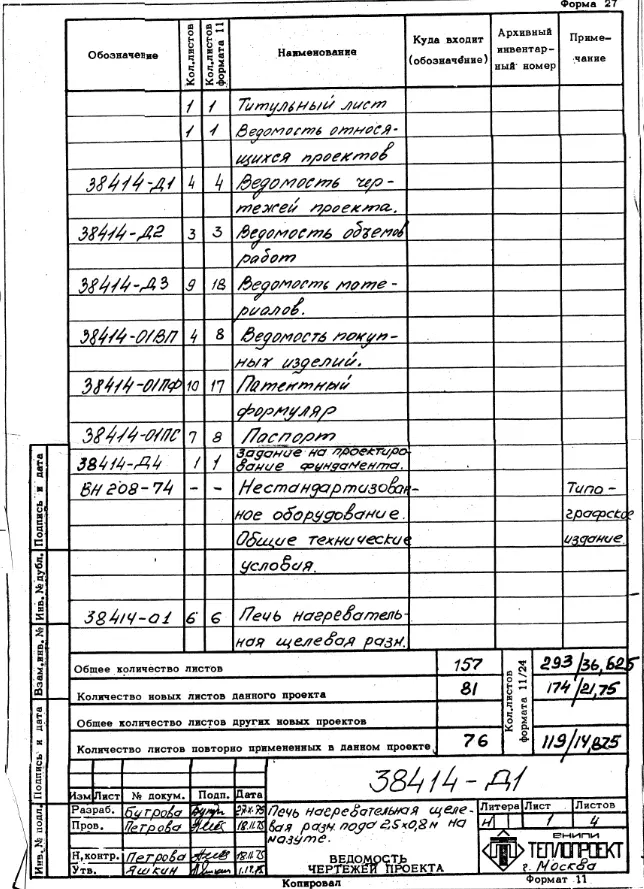 Форма 27
Обозначение Кол.листов Кол.листов формата 11 Наименование Куда входит (обозначение) Архивный инвентарный номер Примечание
1 1 Титульный лист
1 1 Ведомость относя-
щихся проектов
38414-Д1 4 4 Ведомость чер-
тежей проекта.
38414-Д2 3 3 Ведомость объемов
работ
38414-Д3 9 18 Ведомость мате-
риалов.
38414-01ВП 4 8 Ведомость покуп-
ных изделий.
38414-01ПФ 10 17 Патентный
формуляр
38414-01ПС 7 8 Паспорт
38414-Д4 1 1 Задание на проектиро-
вание фундамента.
ВН 208-74 - - Нестандартизован- Типо-
ное оборудование. графское
Общие технические издание.
условия.
38414-01 6 6 Печь нагреватель-
ная щелевая разн.
Общее количество листов 157 Кол.листов формата 11/24 293/36,625
Количество новых листов данного проекта 81 174/21,75
Общее количество листов других новых проектов
Количество листов повторно примененных в данном проекте 76 119/14,875
38414-Д1
Изм Лист № докум. Подп. Дата
Разраб. Бугрова
Пров. Петрова 18.11.75
Н.контр. Петрова 18.11.75
Утв. Яшкин
Печь нагревательная щеле-
вая разн. пода 2,5х0,8м на
мазуте.
ВЕДОМОСТЬ
ЧЕРТЕЖЕЙ ПРОЕКТА
Литера Лист Листов
И 1 4
ВНИПИ
ТЕПЛОПРОЕКТ
г. Москва
Копировал Формат 11
Инв.№ подл. Подпись и дата Взам.инв.№ Инв.№ дубл. Подпись и дата